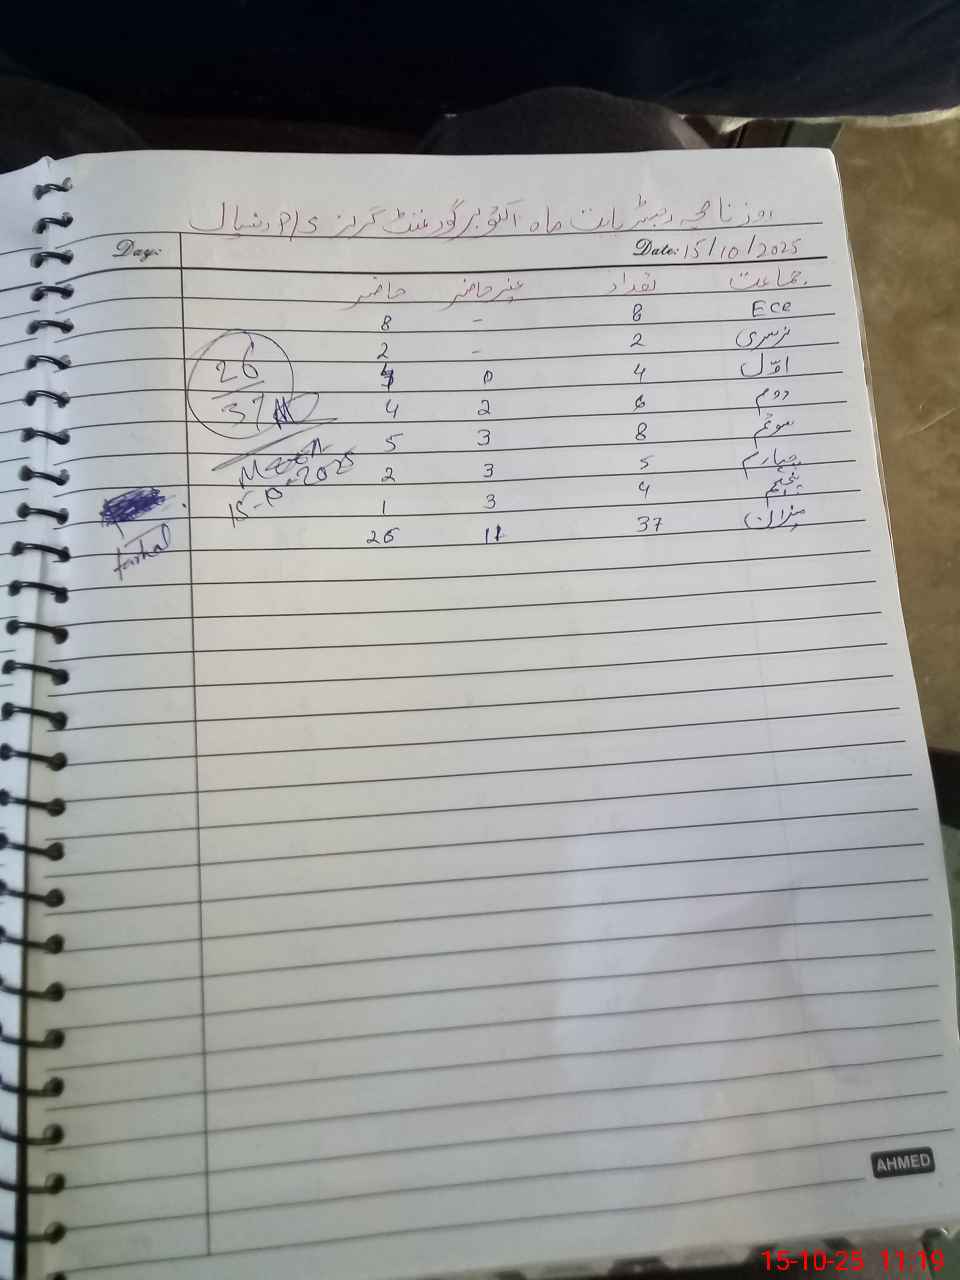 روزنامچہ رجسٹر بابت ماہ اکتوبر گورنمنٹ گرلز P/S
Day:
Date: 15/10/2025
جماعت تعداد غیر حاضر حاضر
Ece 8 - 8
نرسری 2 - 2
اوّل 4 0 4
دوم 6 2 4
سوئم 8 3 5
چہارم 5 3 2
پنجم 4 3 1
میزان 37 11 26
26
37
15-10-2025
AHMED
15-10-25 11:19